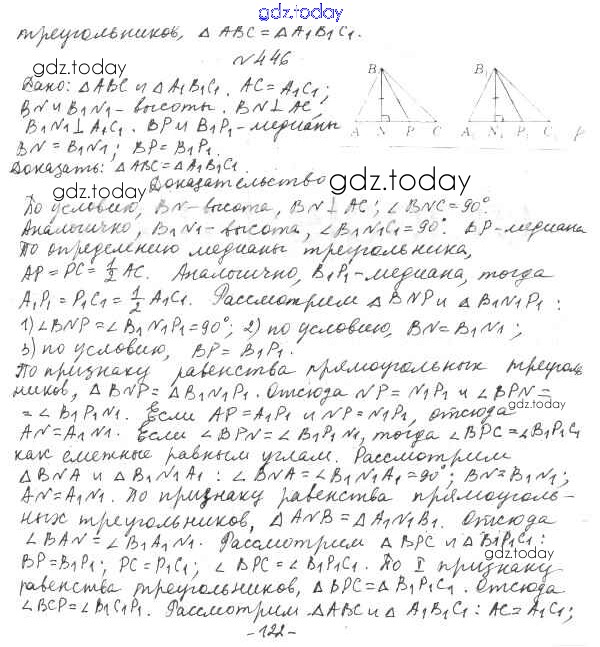 gdz.today
треугольников, △ABC = △A₁B₁C₁.
№446
gdz.today
Дано: △ABC и △A₁B₁C₁. AC = A₁C₁;
BN и B₁N₁ - высоты. BN ⊥ AC
B₁N₁ ⊥ A₁C₁. BP и B₁P₁ - медианы
BN = B₁N₁; BP = B₁P₁.
gdz.today
B B₁
A N P C A₁ N₁ P₁ C₁ P
Доказать: △ABC = △A₁B₁C₁
Доказательство gdz.today
По условию, BN - высота, BN ⊥ AC; ∠BNC = 90°.
Аналогично, B₁N₁ - высота, ∠B₁N₁C₁ = 90°. BP - медиана
По определению медианы треугольника,
gdz.today
AP = PC = ½ AC. Аналогично, B₁P₁ - медиана, тогда
A₁P₁ = P₁C₁ = ½ A₁C₁. Рассмотрим △BNP и △B₁N₁P₁:
1) ∠BNP = ∠B₁N₁P₁ = 90°; 2) по условию, BN = B₁N₁;
gdz.today
3) по условию, BP = B₁P₁.
По признаку равенства прямоугольных треуголь-
ников, △BNP = △B₁N₁P₁. Отсюда NP = N₁P₁ и ∠BPN =
gdz.today
= ∠B₁P₁N₁. Если AP = A₁P₁ и NP = N₁P₁, отсюда
AN = A₁N₁. Если ∠BPN = ∠B₁P₁N₁, тогда ∠BPC = ∠B₁P₁C₁
как смежные равным углам. Рассмотрим
gdz.today
△BNA и △B₁N₁A₁: ∠BNA = ∠B₁N₁A₁ = 90°; BN = B₁N₁;
AN = A₁N₁. По признаку равенства прямоуголь-
gdz.today
ных треугольников, △ANB = △A₁N₁B₁. Отсюда
∠BAN = ∠B₁A₁N₁. Рассмотрим △BPC и △B₁P₁C₁:
gdz.today
BP = B₁P₁; PC = P₁C₁; ∠BPC = ∠B₁P₁C₁. По I признаку
равенства треугольников, △BPC = △B₁P₁C₁. Отсюда
gdz.today
∠BCP = ∠B₁C₁P₁. Рассмотрим △ABC и △A₁B₁C₁: AC = A₁C₁;
-122-